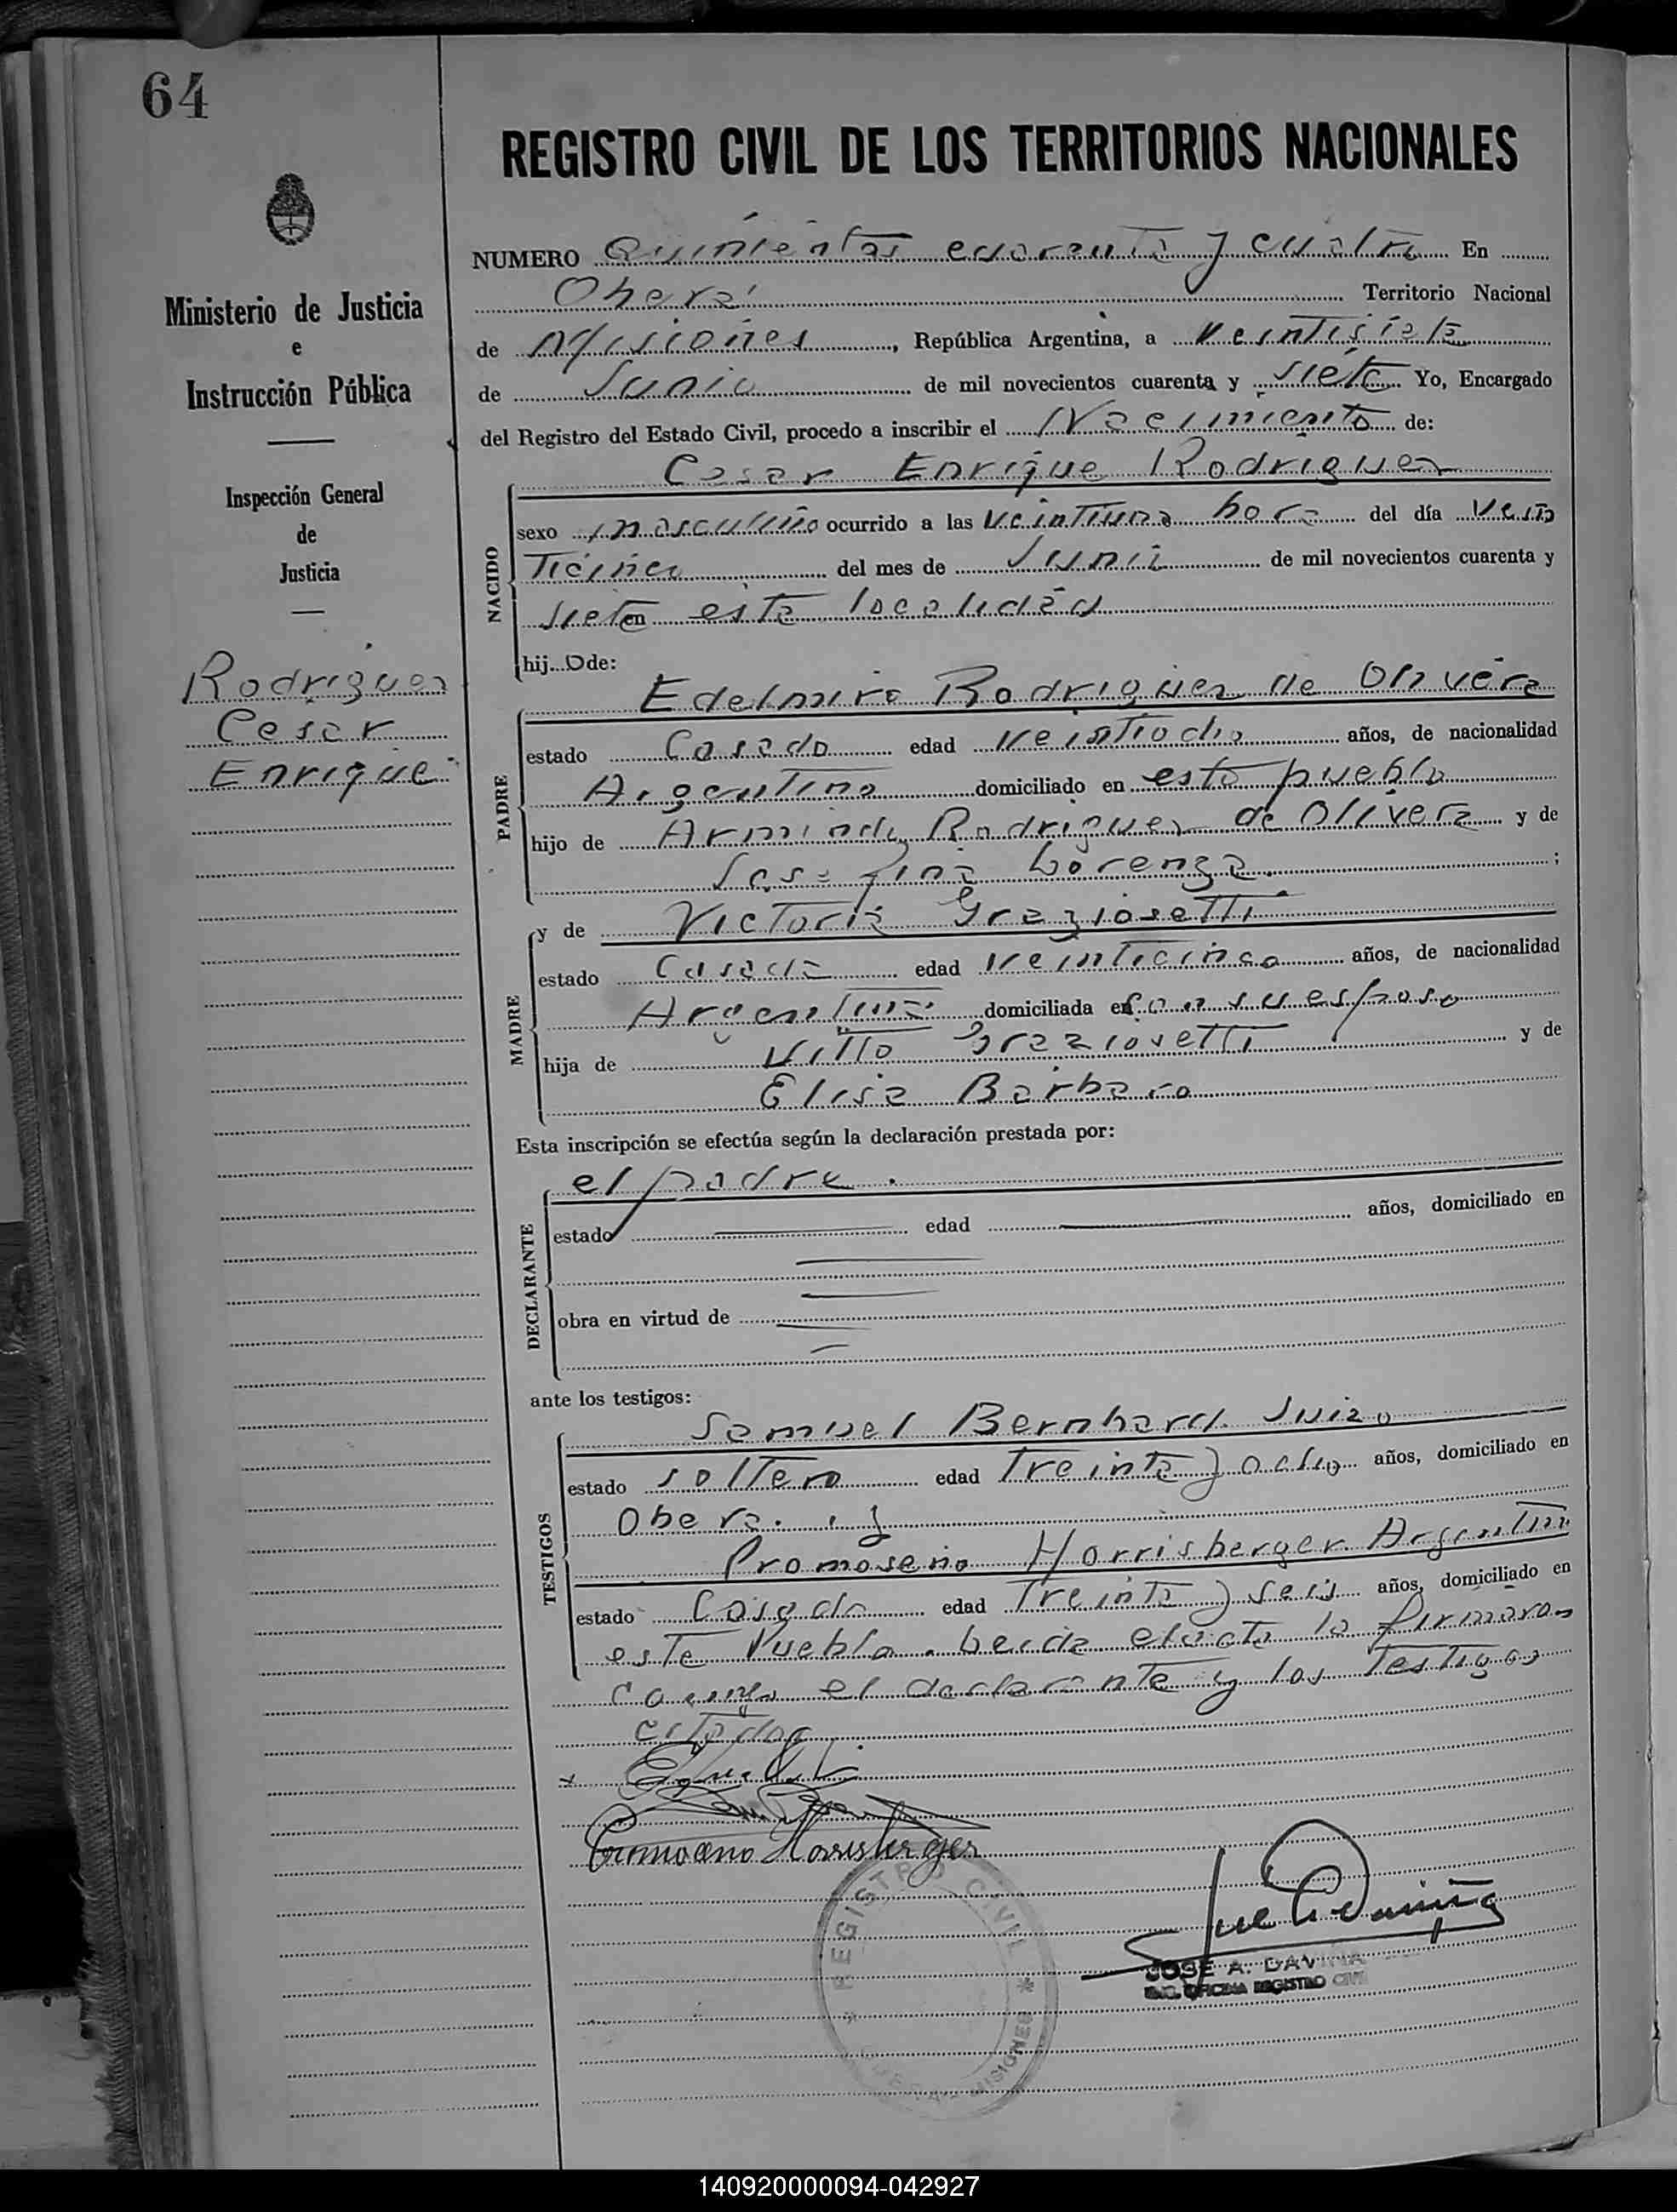 64
REGISTRO CIVIL DE LOS TERRITORIOS NACIONALES
Ministerio de Justicia
e
Instrucción Pública
Inspección General
de
Justicia
Rodriguez
Cesar
Enrique
NUMERO Quinientos cuarenta y cuatro En
Oberá Territorio Nacional
de Misiones, República Argentina, a veintisiete
de Junio de mil novecientos cuarenta y siete Yo, Encargado
del Registro del Estado Civil, procedo a inscribir el Nacimiento de:
Cesar Enrique Rodriguez
NACIDO
sexo masculino ocurrido a las veintiuna hora del día vein
ticinco del mes de Junio de mil novecientos cuarenta y
siete en esta localidad
hij o de:
PADRE
Edelmiro Rodriguez de Olivera
estado Casado edad veintiocho años, de nacionalidad
Argentina domiciliado en este pueblo
hijo de Armindo Rodriguez de Olivera y de
Josefina Lorenza ;
MADRE
y de Victoria Graziosetti
estado Casada edad veinticinco años, de nacionalidad
Argentina domiciliada en con su esposo
hija de Vitto Graziosetti y de
Elisa Barbaro
Esta inscripción se efectúa según la declaración prestada por:
DECLARANTE
el padre.
estado edad años, domiciliado en
obra en virtud de
ante los testigos:
TESTIGOS
Samuel Bernhard Suizo
estado soltero edad Treinta y ocho años, domiciliado en
Obera. y
Horrisberger. Argentin
estado Casado edad Treinta y seis años, domiciliado en
este Pueblo. Leida el acta la firmaron
conmigo el declarante y los Testigos
citados
Horrisberger
REGISTRO CIVIL
OBERA - MISIONES
JOSE A. DAVIÑA
ENC. OFICINA REGISTRO CIVIL
140920000094-042927